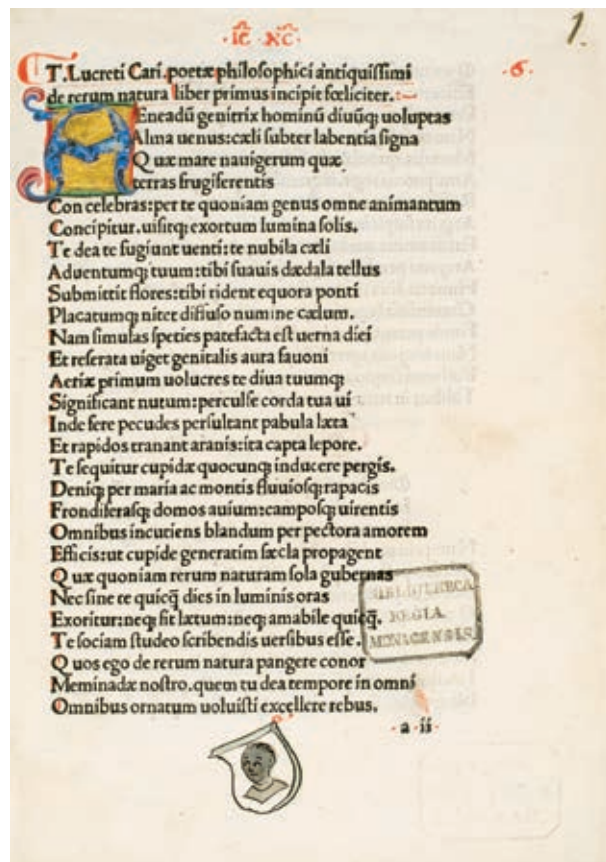 ·iē·xc̄·
1.
T. Lucreti Cari. poetæ philosophici antiquissimi
·6·
de rerum natura liber primus incipit fœliciter.:—
AEneadū genitrix hominū diuūq; uoluptas
Alma uenus: cæli subter labentia signa
Quæ mare nauigerum quæ
terras frugiferentis
Con celebras: per te quoniam genus omne animantum
Concipitur. uisitq; exortum lumina solis.
Te dea te fugiunt uenti: te nubila cæli
Aduentumq; tuum: tibi suauis dædala tellus
Submittit flores: tibi rident equora ponti
Placatumq; nitet diffuso numine cælum.
Nam simulas species patefacta est uerna diei
Et reserata uiget genitalis aura fauoni
Aeriæ primum uolucres te diua tuumq;
Significant nutum: perculse corda tua ui
Inde fere pecudes persultant pabula læta
Et rapidos tranant aranis: ita capta lepore.
Te sequitur cupidæ quocunq; inducere pergis.
Deniq; per maria ac montis fluuiosq; rapacis
Frondiferasq; domos auium: camposq; uirentis
Omnibus incutiens blandum per pectora amorem
Efficis: ut cupide generatim sæcla propagent
Quæ quoniam rerum naturam sola gubernas
Nec sine te quicq̄ dies in luminis oras
Exoritur: neq; fit lætum: neq; amabile quicq̄.
Te sociam studeo scribendis uersibus esse.
Quos ego de rerum natura pangere conor
Meminadæ nostro. quem tu dea tempore in omni
Omnibus ornatum uoluisti excellere rebus.
BIBLIOTHECA
REGIA
MONACENSIS.
·a ii·